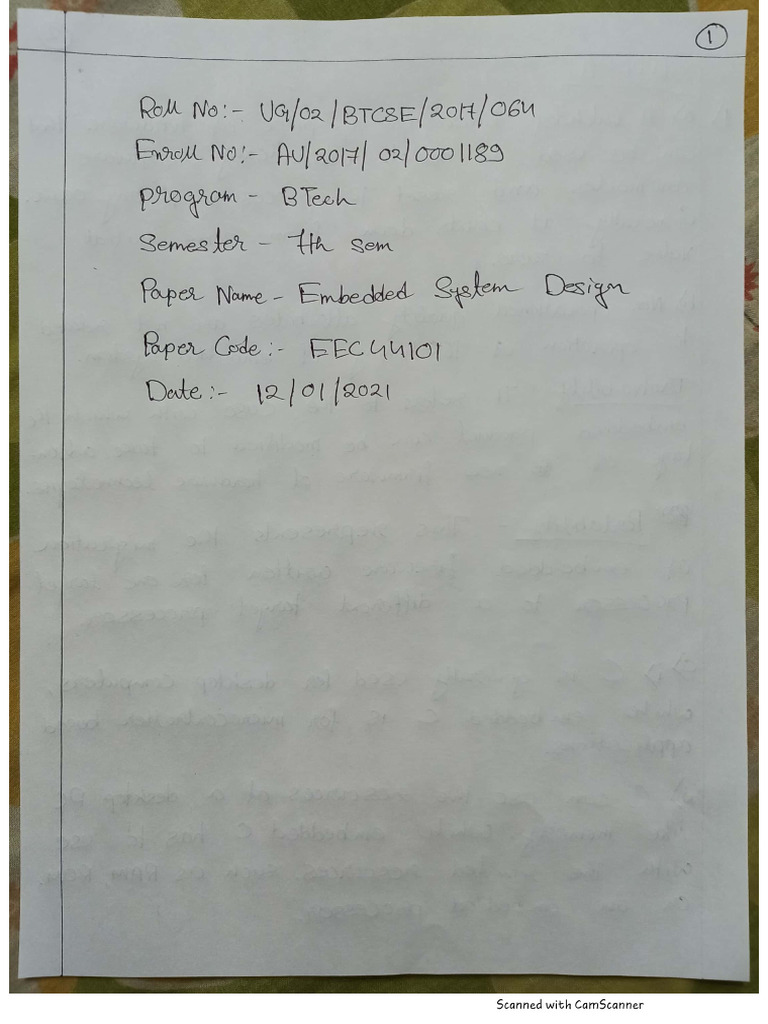 1
Roll No:- UG/02/BTCSE/2017/064
Enroll No:- AU/2017/02/0001189
program - BTech
Semester - 7th sem
Paper Name - Embedded System Design
Paper Code:- EEC44101
Date:- 12/01/2021
Scanned with CamScanner